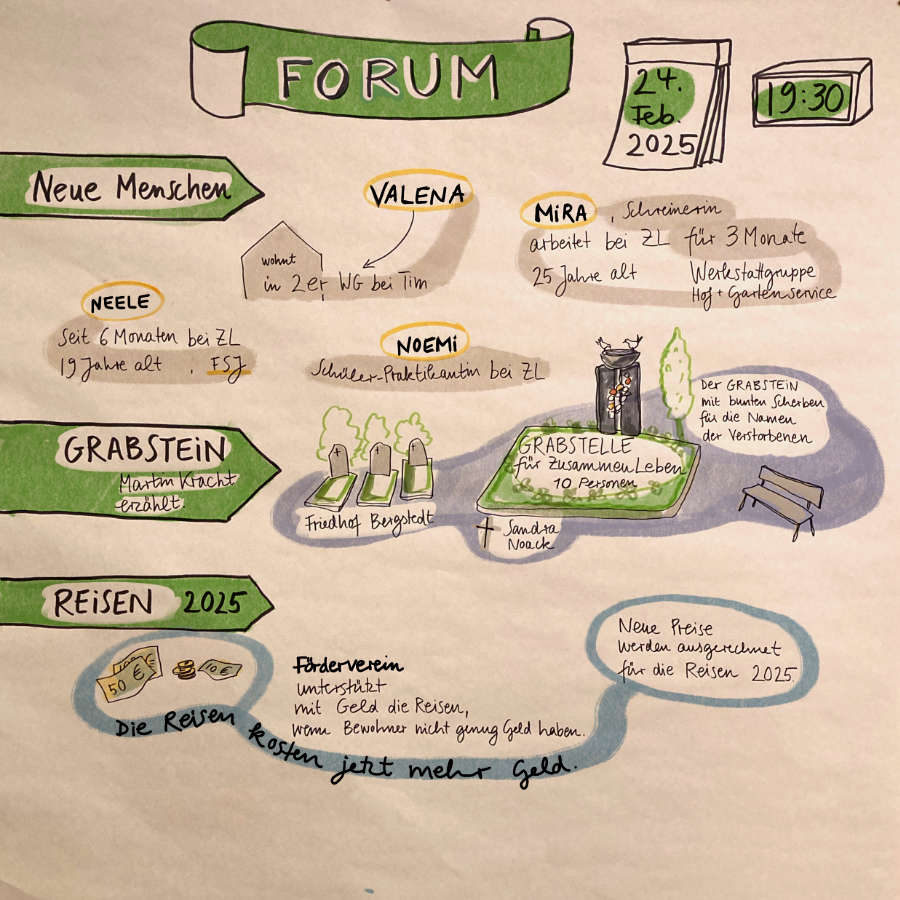 FORUM
24.
Feb.
2025
19:30
Neue Menschen
VALENA
wohnt
in 2er WG bei Tim
MiRA, Schreinerin
arbeitet bei ZL für 3 Monate
25 Jahre alt Werkstattgruppe
Hof + Gartenservice
NEELE
Seit 6 Monaten bei ZL
19 Jahre alt, FSJ
NOEMi
Schüler-Praktikantin bei ZL
GRABSTEiN
Martin Kracht
erzählt.
Friedhof Bergstedt
GRABSTELLE
für ZusammenLeben
10 Personen
Sandra
Noack
Der GRABSTEiN
mit bunten Scherben
für die Namen
der Verstorbenen
REiSEN 2025
50 €
10 €
Die Reisen kosten jetzt mehr Geld.
Förderverein
unterstützt
mit Geld die Reisen,
wenn Bewohner nicht genug Geld haben.
Neue Preise
werden ausgerechnet
für die Reisen 2025